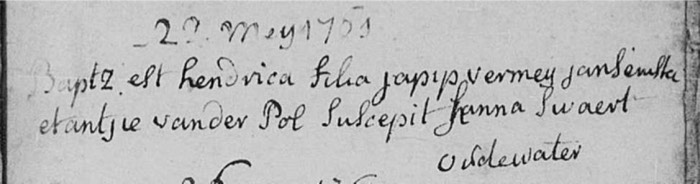 23. Mey 1751
Baptz. est hendrica filia japip vermey
et antjie vander Pol Suscepit Janna Swaert
oudewater